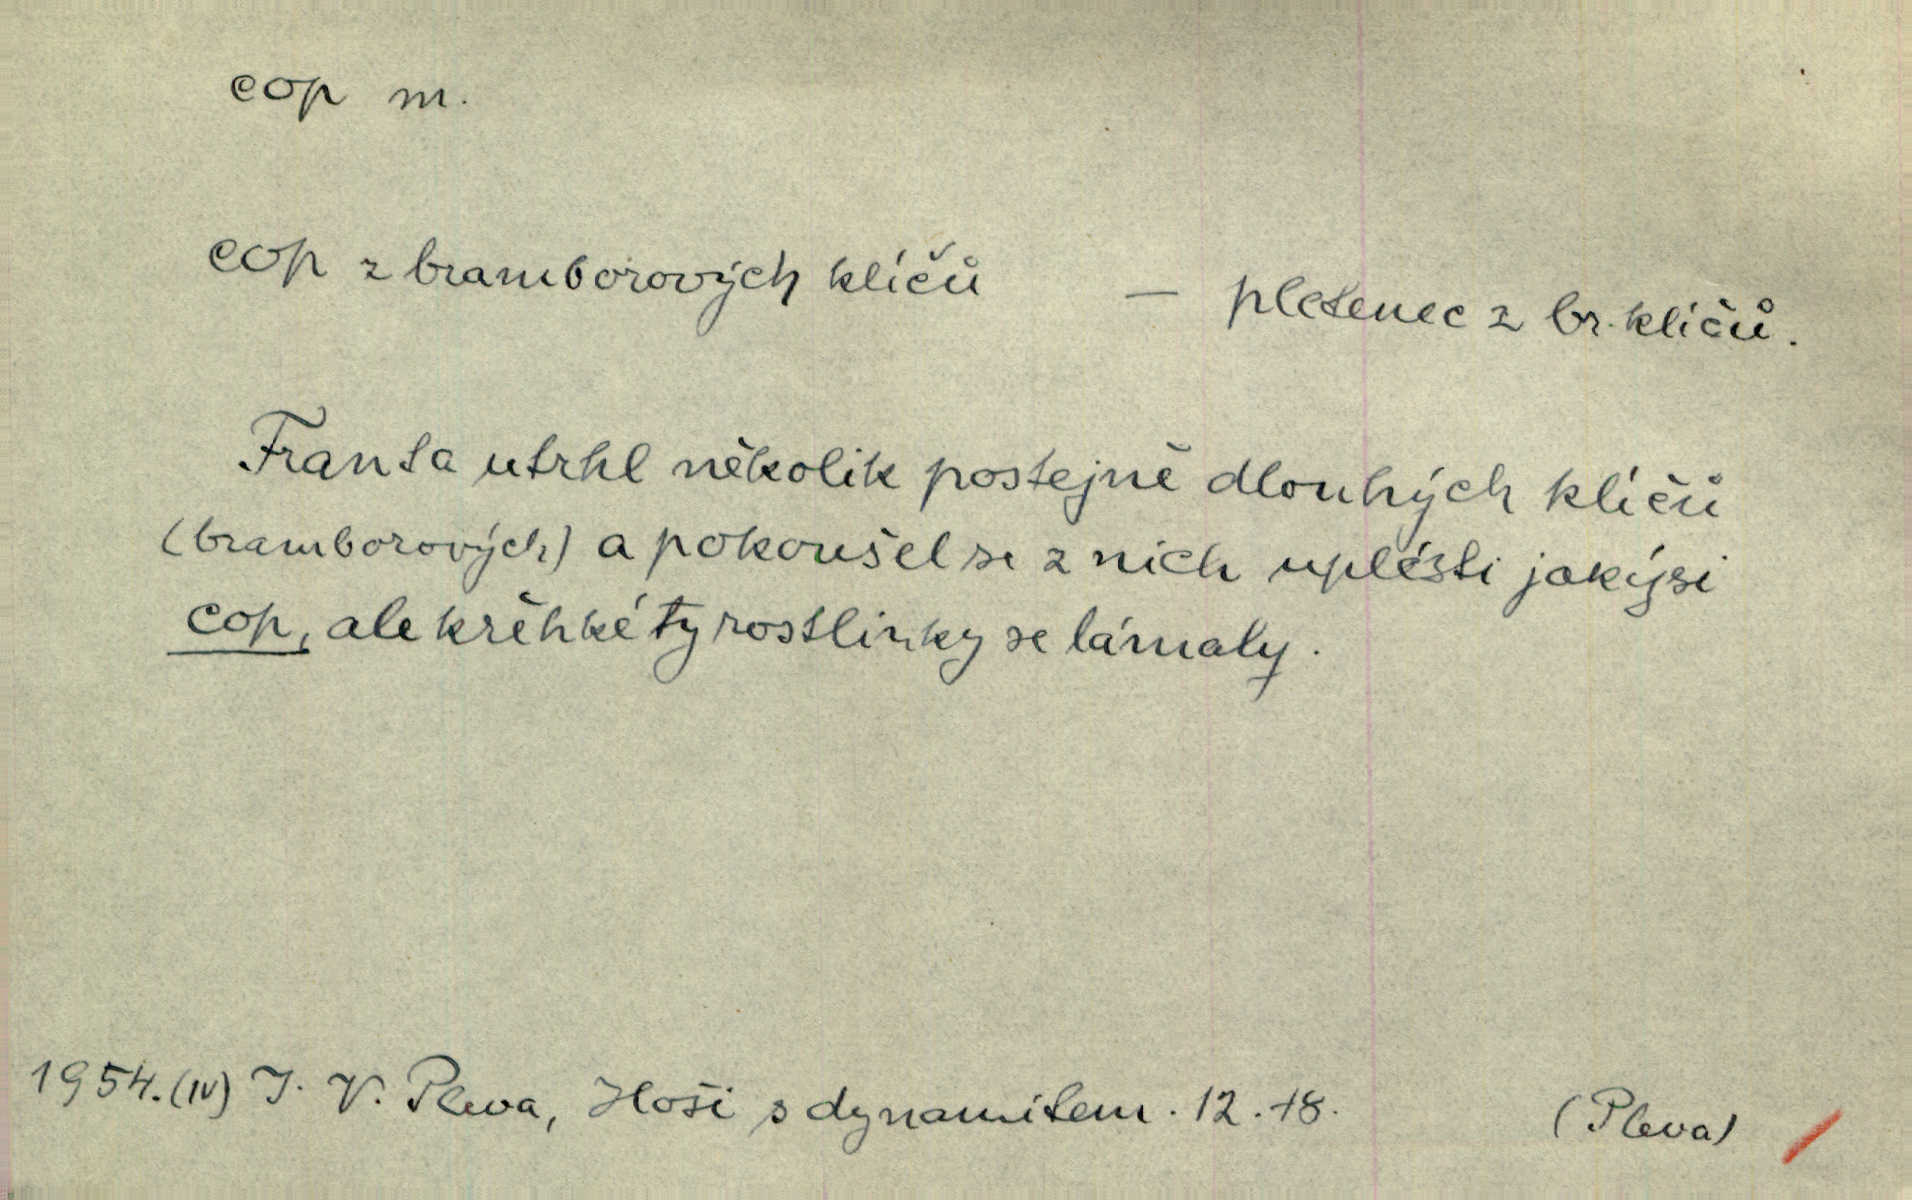 cop m.
cop z bramborových klíčů — pletenec z br. klíčů.
Franta utrhl několik postejně dlouhých klíčů
(bramborových) a pokoušel se z nich uplésti jakýsi
cop, ale křěhké ty rostlinky se lámaly.
1954. (IV) J. V. Pleva, Hoši s dynamitem. 12. +8. (Pleva)